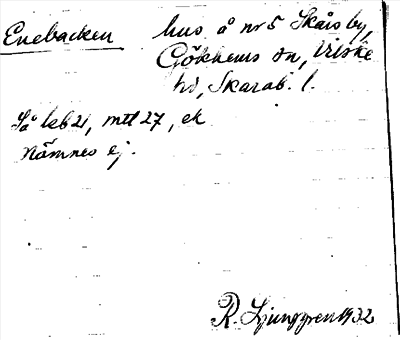 Enebacken hus å nr 5 Skårs by,
Gökhems sn, Vilske
hd, Skarab. l.
Så lkb 21, mtl 27, ek
Nämnes ej.
R. Ljunggren 1932